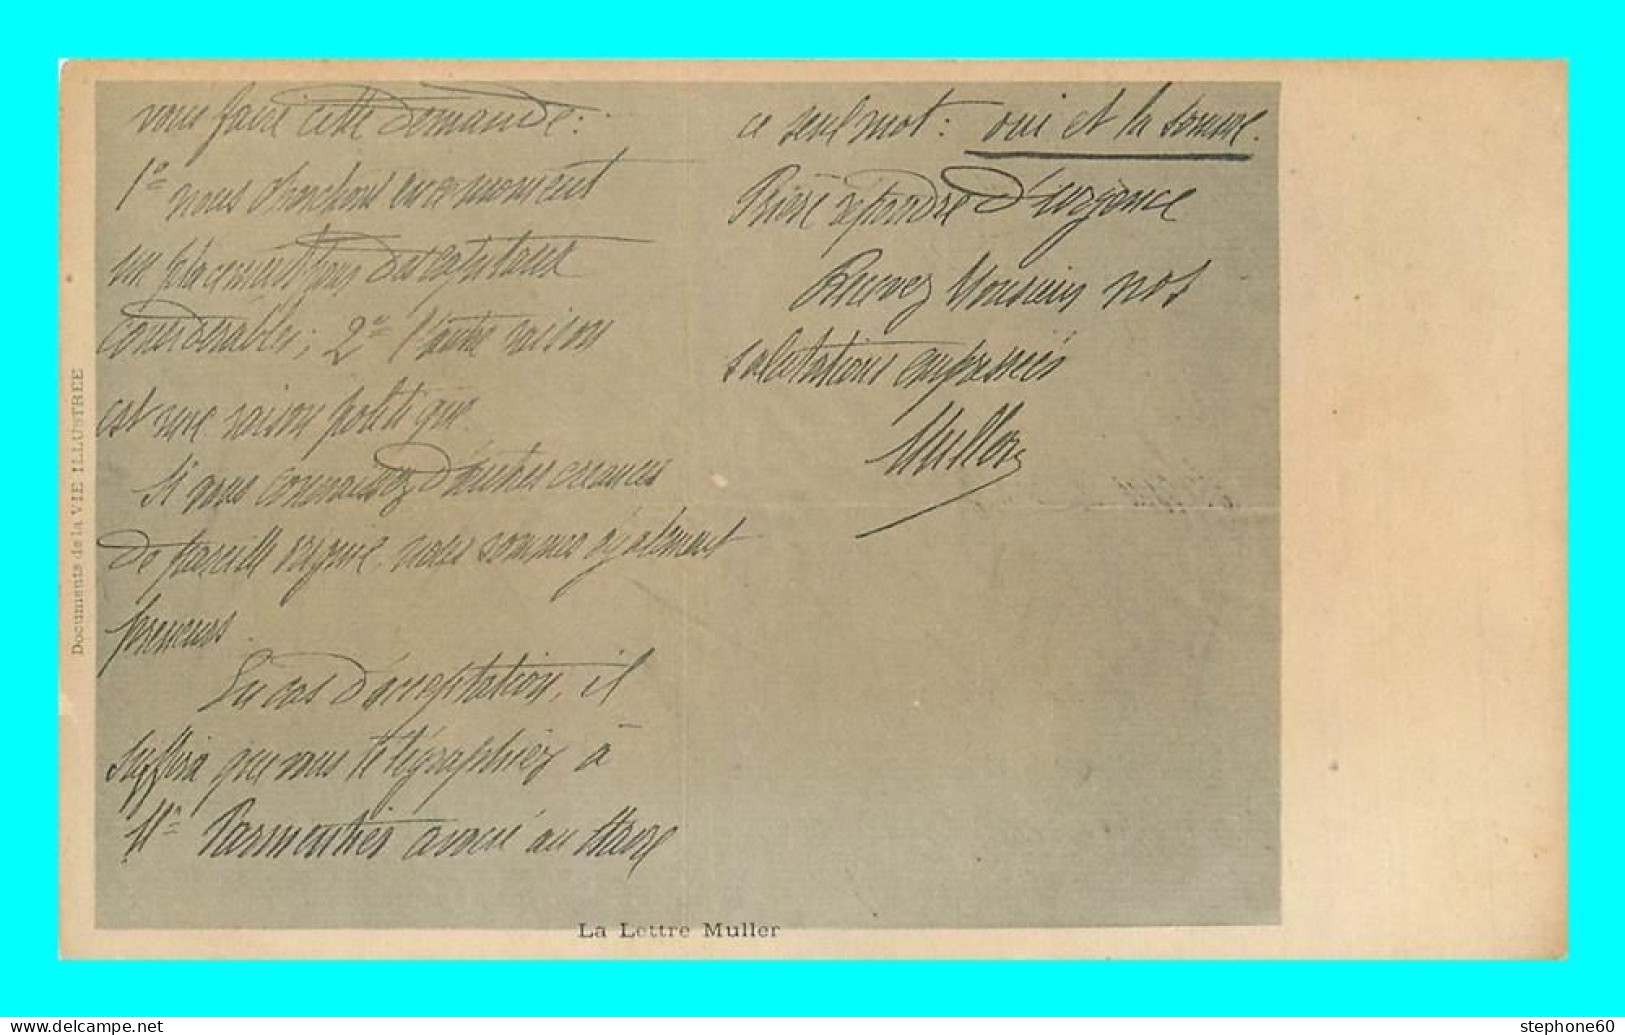 vous faire cette demande :
1° nous cherchons en ce moment
un placement pour des capitaux
considérables ; 2° l'autre raison
est une raison politique.
Si vous connaissez d'autres créances
de pareille origine, nous sommes également
preneurs.
En cas d'acceptation, il
suffira que vous télégraphiez à
Me Parmentier avoué au Havre
ce seul mot : oui et la somme.
Prière répondre d'urgence
Recevez Monsieur nos
salutations empressées
Muller
Documents de la VIE ILLUSTRÉE
La Lettre Muller
www.delcampe.net
stephone60